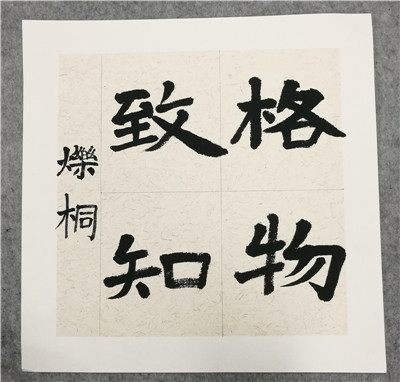 格物
致知
爍桐